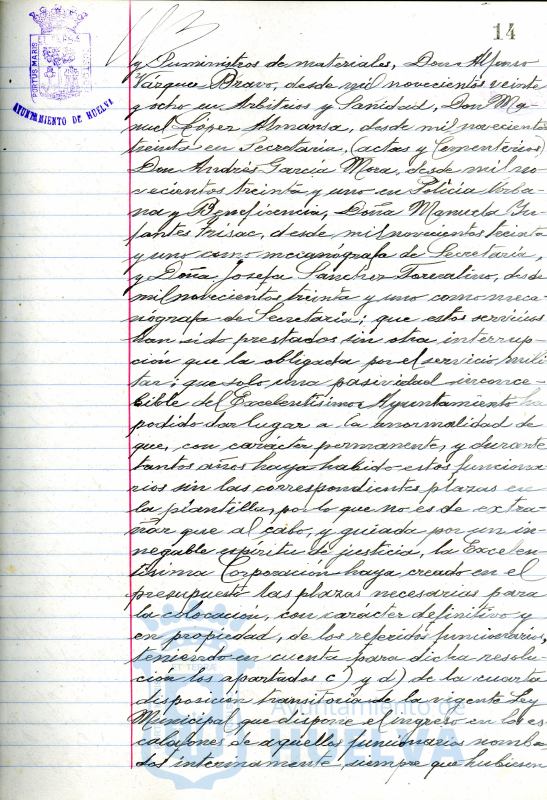 14
PORTUS MARIS
AYUNTAMIENTO DE HUELVA
y Suministros de materiales, Don Alfonso
Vázquez Bravo, desde mil novecientos veinte
y ocho en Arbitrios y Sanidad, Don Ma-
nuel López Almansa, desde mil novecientos
treinta en Secretaría, (actas y Cementerios)
Don Andrés García Mora, desde mil no-
vecientos treinta y uno en Policía Urba-
na y Beneficencia, Doña Manuela In-
fantes Frisac, desde mil novecientos treinta
y uno como mecanógrafa de Secretaría,
y Doña Josefa Sánchez Toscalino, desde
mil novecientos treinta y uno como meca-
nógrafa de Secretaría; que estos servicios
han sido prestados sin otra interrup-
ción que la obligada por el servicio mili-
tar; que solo una pasividad inconce-
bible del Excelentísimo Ayuntamiento ha
podido dar lugar a la anormalidad de
que, con carácter permanente, y durante
tantos años haya habido estos funciona-
rios sin las correspondientes plazas en
la plantilla, por lo que no es de extra-
ñar que al cabo, y guiada por un in-
negable espíritu de justicia, la Excelen-
tísima Corporación haya creado en el
presupuesto las plazas necesarias para
la colocación, con carácter definitivo y
en propiedad, de los referidos funcionarios,
teniendo en cuenta para dicha resolu-
ción los apartados c) y d) de la cuarta
disposición transitoria de la vigente Ley
Municipal que dispone el ingreso en los es-
calafones de aquellos funcionarios nombra-
dos interinamente, siempre que hubiesen
Ayuntamiento de
HUELVA